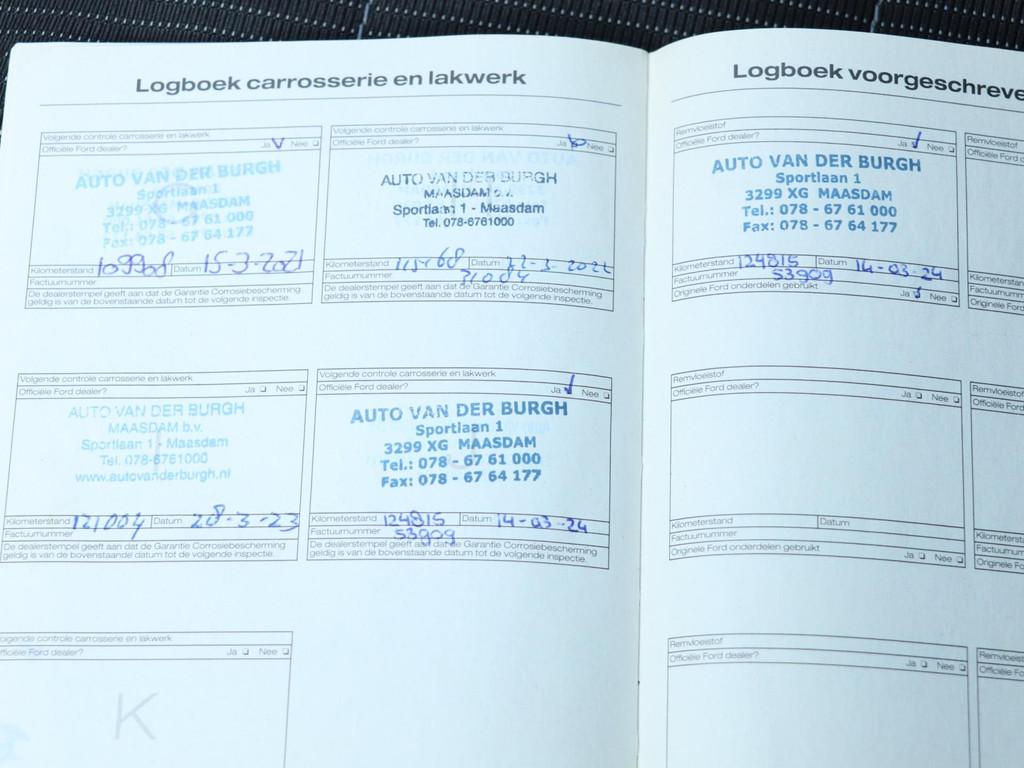 Logboek carrosserie en lakwerk
Volgende controle carrosserie en lakwerk
Officiële Ford dealer? Ja Nee
AUTO VAN DER BURGH
Sportlaan 1
3299 XG MAASDAM
Tel.: 078 - 67 61 000
Fax: 078 - 67 64 177
Kilometerstand 109968 Datum 15-3-2021
Factuurnummer
De dealerstempel geeft aan dat de Garantie Corrosiebescherming
geldig is van bovenstaande datum tot de volgende inspectie.
Volgende controle carrosserie en lakwerk
Officiële Ford dealer? Ja Nee
AUTO VAN DER BURGH
MAASDAM b.v.
Sportlaan 1 - Maasdam
Tel. 078-6761000
Kilometerstand Datum 22-3-2022
Factuurnummer
De dealerstempel geeft aan dat de Garantie Corrosiebescherming
geldig is van bovenstaande datum tot de volgende inspectie.
Volgende controle carrosserie en lakwerk
Officiële Ford dealer? Ja Nee
AUTO VAN DER BURGH
MAASDAM b.v.
Sportlaan 1 - Maasdam
Tel. 078-6761000
www.autovanderburgh.nl
Kilometerstand 121004 Datum 28-3-23
Factuurnummer
De dealerstempel geeft aan dat de Garantie Corrosiebescherming
geldig is van bovenstaande datum tot de volgende inspectie.
Volgende controle carrosserie en lakwerk
Officiële Ford dealer? Ja Nee
AUTO VAN DER BURGH
Sportlaan 1
3299 XG MAASDAM
Tel.: 078 - 67 61 000
Fax: 078 - 67 64 177
Kilometerstand 124815 Datum 14-03-24
Factuurnummer 53909
De dealerstempel geeft aan dat de Garantie Corrosiebescherming
geldig is van bovenstaande datum tot de volgende inspectie.
olgende controle carrosserie en lakwerk
fficiële Ford dealer? Ja Nee
K
Logboek voorgeschreve
Remvloeistof
Officiële Ford dealer? Ja Nee
AUTO VAN DER BURGH
Sportlaan 1
3299 XG MAASDAM
Tel.: 078 - 67 61 000
Fax: 078 - 67 64 177
Kilometerstand 124815 Datum 14-03-24
Factuurnummer 53909
Originele Ford onderdelen gebruikt Ja Nee
Remvloeistof
Officiële Ford d
Kilometerst
Factuurnum
Originele Fo
Remvloeistof
Officiële Ford dealer? Ja Nee
Kilometerstand Datum
Factuurnummer
Originele Ford onderdelen gebruikt Ja Nee
Remvloeistof
Officiële For
Kilometerst
Factuurnum
Originele Fo
Remvloeistof
Officiële Ford dealer? Ja Nee
Remvloeistof
Officiële Fo